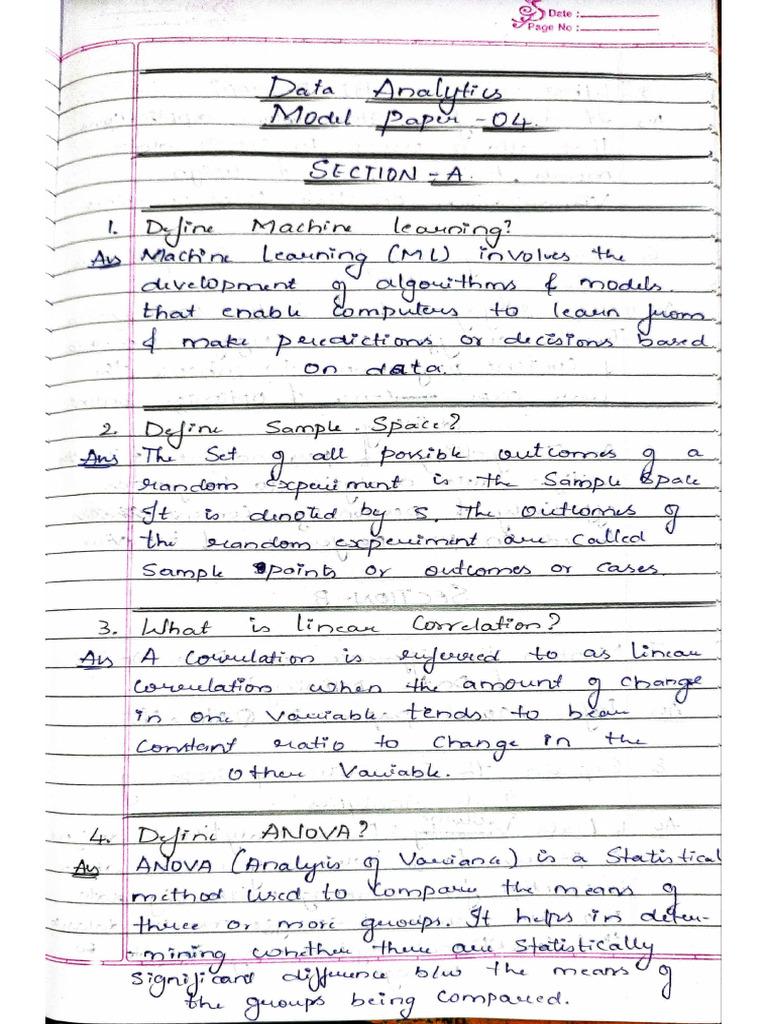 Date :
Page No :
Data Analytics
Model Paper - 04.
SECTION - A.
1. Define Machine learning?
Ans Machine Learning (ML) involves the
development of algorithms & models.
that enable computers to learn from
& make predictions or decisions based
on data.
2. Define Sample Space?
Ans The Set of all possible outcomes of a
random experiment is the Sample Space
It is denoted by S. The outcomes of
the random experiment are called
Sample points or outcomes or cases.
3. What is linear Correlation?
Ans A correlation is referred to as linear
correlation when the amount of change
in one variable tends to bear
constant ratio to change in the
other Variable.
4. Define ANOVA?
Ans ANOVA (Analysis of Variance) is a Statistical
method used to compare the means of
three or more groups. It helps in deter-
-mining whether there are statistically
significant difference b/w the means of
the groups being compared.